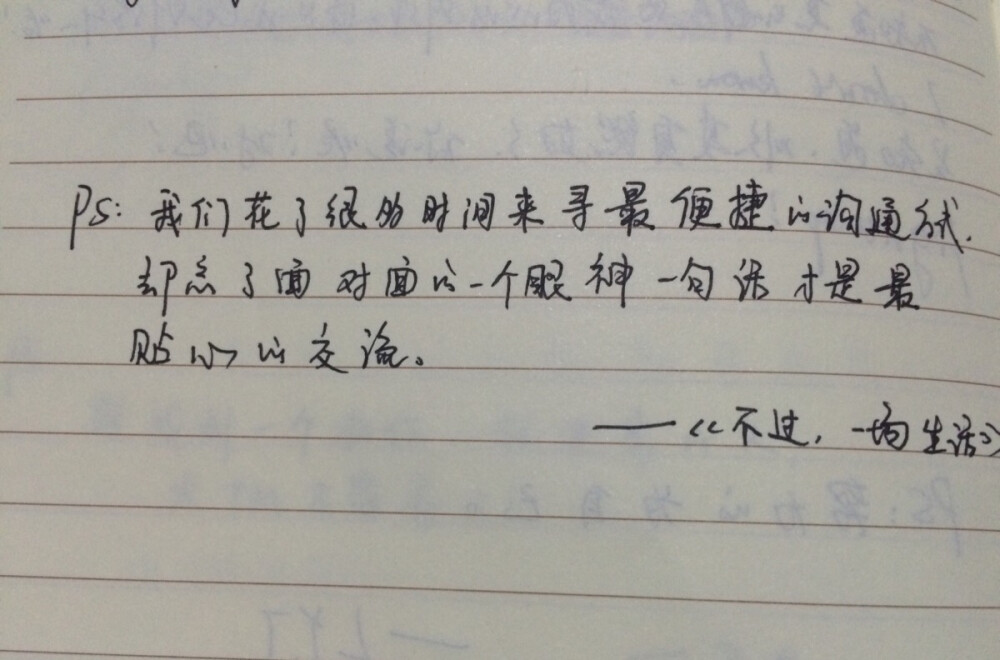 PS: 我们花了很多时间来寻最便捷的沟通方式.
却忘了面对面的一个眼神一句话才是最
贴心的交流。
——《不过,一场生活》